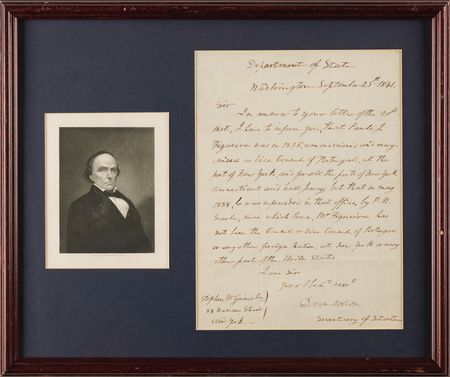 Department of State
Washington September 25th 1841.
Sir
In answer to your letter of the 20th
inst, I have to inform you, that Paulo J.
Figueira was in 1835, commissioned and recog-
nised as Vice Consul of Portugal, at the
port of New York, and for all the ports of New York
Connecticut and East Jersey, but that in may
1838, he was superseded in that office, by P. N.
Searle, since which time, Mr Figueira has
not been the Consul or Vice Consul of Portugal
or any other foreign nation, at New York or any
other part of the United States
I am Sir
Your Obedt Servt
Secretary of State
Stephen W. Gaines Esq
33 Nassau Street
New York.